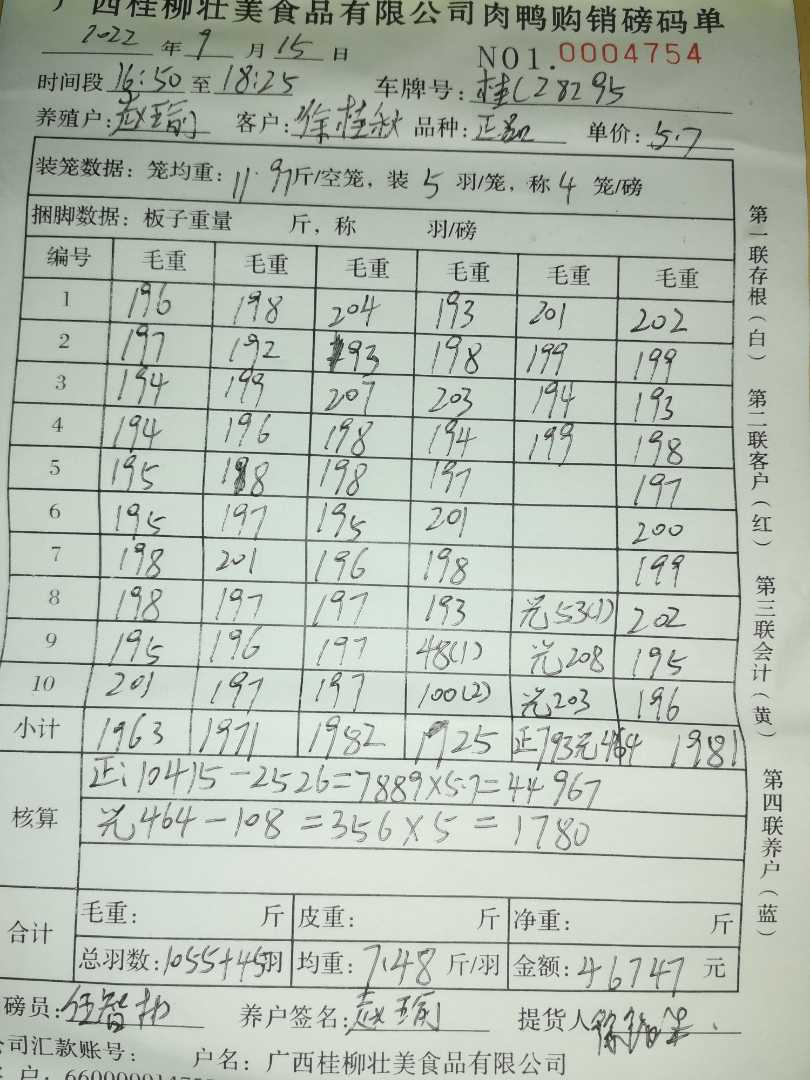 广西桂柳壮美食品有限公司肉鸭购销磅码单
2022 年 9 月 15 日 NO1.0004754
时间段 16:50 至 18:25 车牌号: 桂C28295
养殖户: 赵 客户: 徐桂秋 品种: 正 单价: 5.7
装笼数据: 笼均重: 11.97 斤/空笼, 装 5 羽/笼, 称 4 笼/磅
捆脚数据: 板子重量 斤, 称 羽/磅
编号 毛重 毛重 毛重 毛重 毛重 毛重
1 196 198 204 193 201 202
2 197 192 193 198 199 199
3 194 199 207 203 194 193
4 194 196 198 194 199 198
5 195 198 198 197 197
6 195 197 195 201 200
7 198 201 196 198 199
8 198 197 197 193 光53(1) 202
9 195 196 197 48(1) 光208 195
10 201 197 197 100(2) 光203 196
小计 1963 1971 1982 1925 正793光464 1981
核算 正: 10415-2526=7889×5.7=44967
光464-108=356×5=1780
合计 毛重: 斤 皮重: 斤 净重: 斤
总羽数: 1055+45羽 均重: 7.48 斤/羽 金额: 46747 元
磅员: 养户签名: 赵 提货人
公司汇款账号: 户名: 广西桂柳壮美食品有限公司
户:
第一联存根(白) 第二联客户(红) 第三联会计(黄) 第四联养户(蓝)